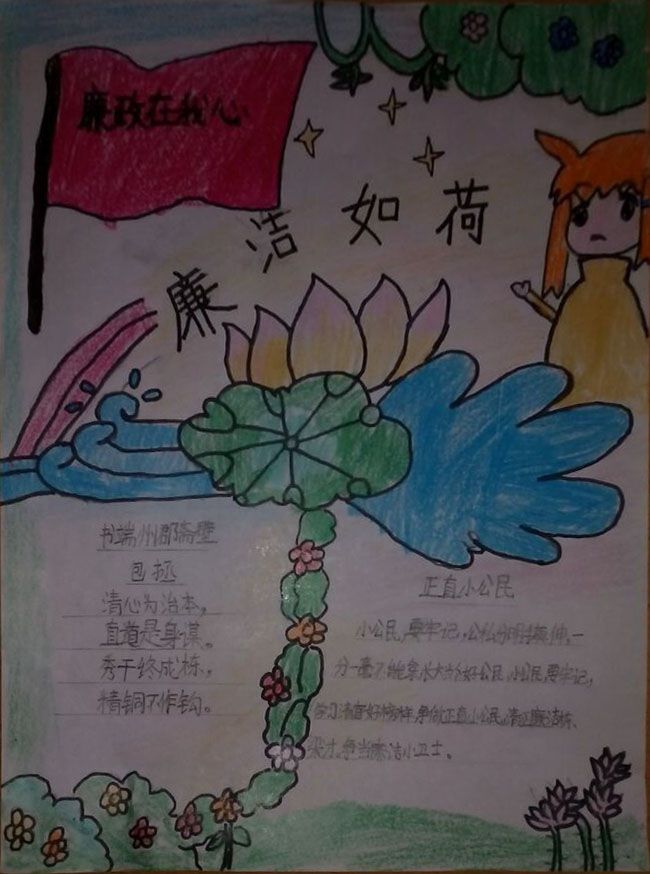 廉政在我心
廉洁如荷
书端州郡斋壁
包拯
清心为治本，
直道是身谋。
秀干终成栋，
精钢不作钩。
正直小公民
小公民，要牢记，公私分明，一
分一毫不能拿，长大做个好公民，小公民，要牢记，
学习清官好榜样，争做正直小公民，清正廉洁栋、
梁才，争当廉洁小卫士。